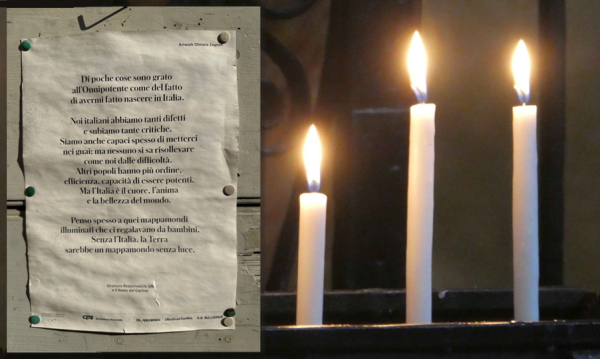 Artwork Ginara Zagnoli
Di poche cose sono grato
all'Onnipotente come del fatto
di avermi fatto nascere in Italia.
Noi italiani abbiamo tanti difetti
e subiamo tante critiche.
Siamo anche capaci spesso di metterci
nei guai: ma nessuno si sa risollevare
come noi dalle difficoltà.
Altri popoli hanno più ordine,
efficienza, capacità di essere potenti.
Ma l'Italia è il cuore, l'anima
e la bellezza del mondo.
Penso spesso a quei mappamondi
illuminati che ci regalavano da bambini.
Senza l'Italia, la Terra
sarebbe un mappamondo senza luce.
Direttore Responsabile QN
e il Resto del Carlino